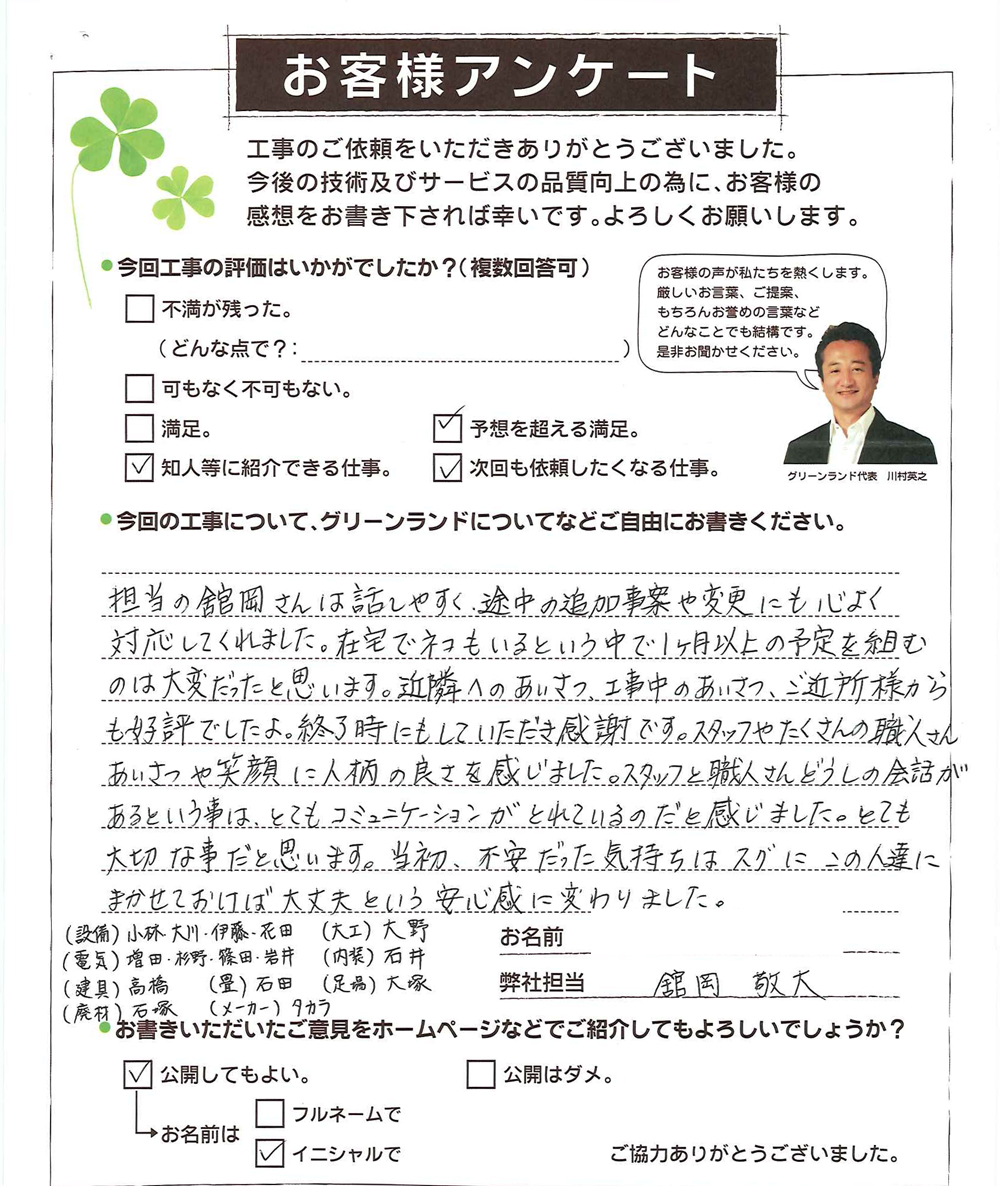 お客様アンケート
工事のご依頼をいただきありがとうございました。
今後の技術及びサービスの品質向上の為に、お客様の
感想をお書き下されば幸いです。よろしくお願いします。
今回工事の評価はいかがでしたか?(複数回答可)
不満が残った。
(どんな点で?: )
可もなく不可もない。
満足。
予想を超える満足。
知人等に紹介できる仕事。
次回も依頼したくなる仕事。
お客様の声が私たちを熱くします。
厳しいお言葉、ご提案、
もちろんお誉めの言葉など
どんなことでも結構です。
是非お聞かせください。
グリーンランド代表 川村英之
今回の工事について、グリーンランドについてなどご自由にお書きください。
担当の舘岡さんは話しやすく、途中の追加事案や変更にも心よく
対応してくれました。在宅でネコもいるという中で1ヶ月以上の予定を組む
のは大変だったと思います。近隣へのあいさつ、工事中のあいさつ、ご近所様から
も好評でしたよ。終了時にもしていただき感謝です。スタッフやたくさんの職人さん
あいさつや笑顔に人柄の良さを感じました。スタッフと職人さんどうしの会話が
あるという事は、とてもコミュニケーションがとれているのだと感じました。とても
大切な事だと思います。当初、不安だった気持ちはスグにこの人達に
まかせておけば大丈夫という安心感に変わりました。
(設備)小林・大川・伊藤・花田 (大工)大野
(電気)増田・杉野・篠田・岩井 (内装)石井
(建具)高橋 (畳)石田 (足場)大塚
(廃材)石塚 (メーカー)タカラ
お名前
弊社担当 舘岡 敬大
お書きいただいたご意見をホームページなどでご紹介してもよろしいでしょうか?
公開してもよい。
公開はダメ。
お名前は
フルネームで
イニシャルで
ご協力ありがとうございました。